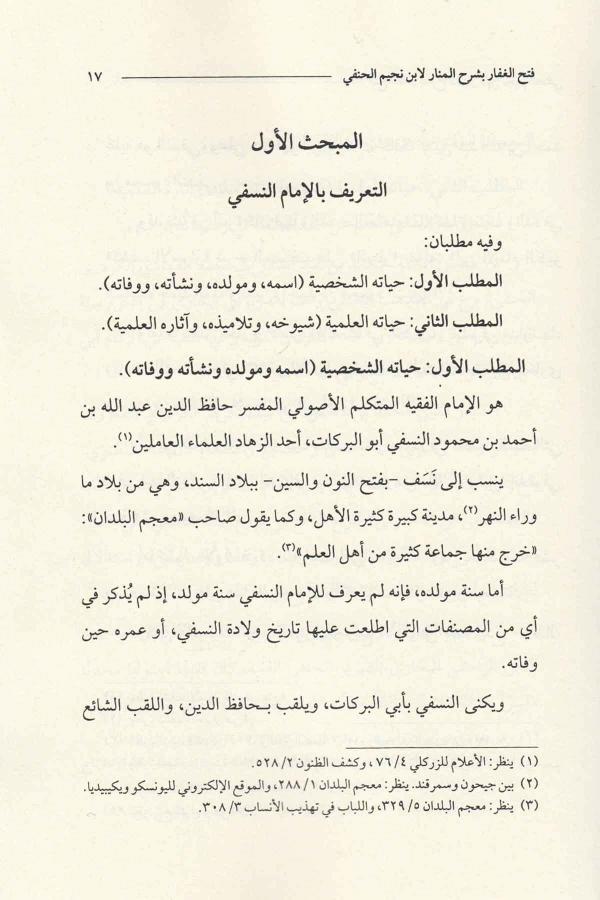 فتح الغفار بشرح المنار لابن نجيم الحنفي ١٧
المبحث الأول
التعريف بالإمام النسفي
وفيه مطلبان:
المطلب الأول: حياته الشخصية (اسمه، ومولده، ونشأته، ووفاته).
المطلب الثاني: حياته العلمية (شيوخه، وتلاميذه، وآثاره العلمية).
المطلب الأول: حياته الشخصية (اسمه ومولده ونشأته ووفاته).
هو الإمام الفقيه المتكلم الأصولي المفسر حافظ الدين عبد الله بن
أحمد بن محمود النسفي أبو البركات، أحد الزهاد العلماء العاملين(١).
ينسب إلى نَسَف -بفتح النون والسين- ببلاد السند، وهي من بلاد ما
وراء النهر(٢)، مدينة كبيرة كثيرة الأهل، وكما يقول صاحب «معجم البلدان»:
«خرج منها جماعة كثيرة من أهل العلم»(٣).
أما سنة مولده، فإنه لم يعرف للإمام النسفي سنة مولد، إذ لم يُذكر في
أي من المصنفات التي اطلعت عليها تاريخ ولادة النسفي، أو عمره حين
وفاته.
ويكنى النسفي بأبي البركات، ويلقب بـحافظ الدين، واللقب الشائع
(١) ينظر: الأعلام للزركلي ٤/ ٧٦، وكشف الظنون ٢/ ٥٢٨.
(٢) بين جيحون وسمرقند. ينظر: معجم البلدان ١/ ٢٨٨، والموقع الإلكتروني لليونسكو ويكيبيديا.
(٣) ينظر: معجم البلدان ٥/ ٣٢٩، واللباب في تهذيب الأنساب ٣/ ٣٠٨.